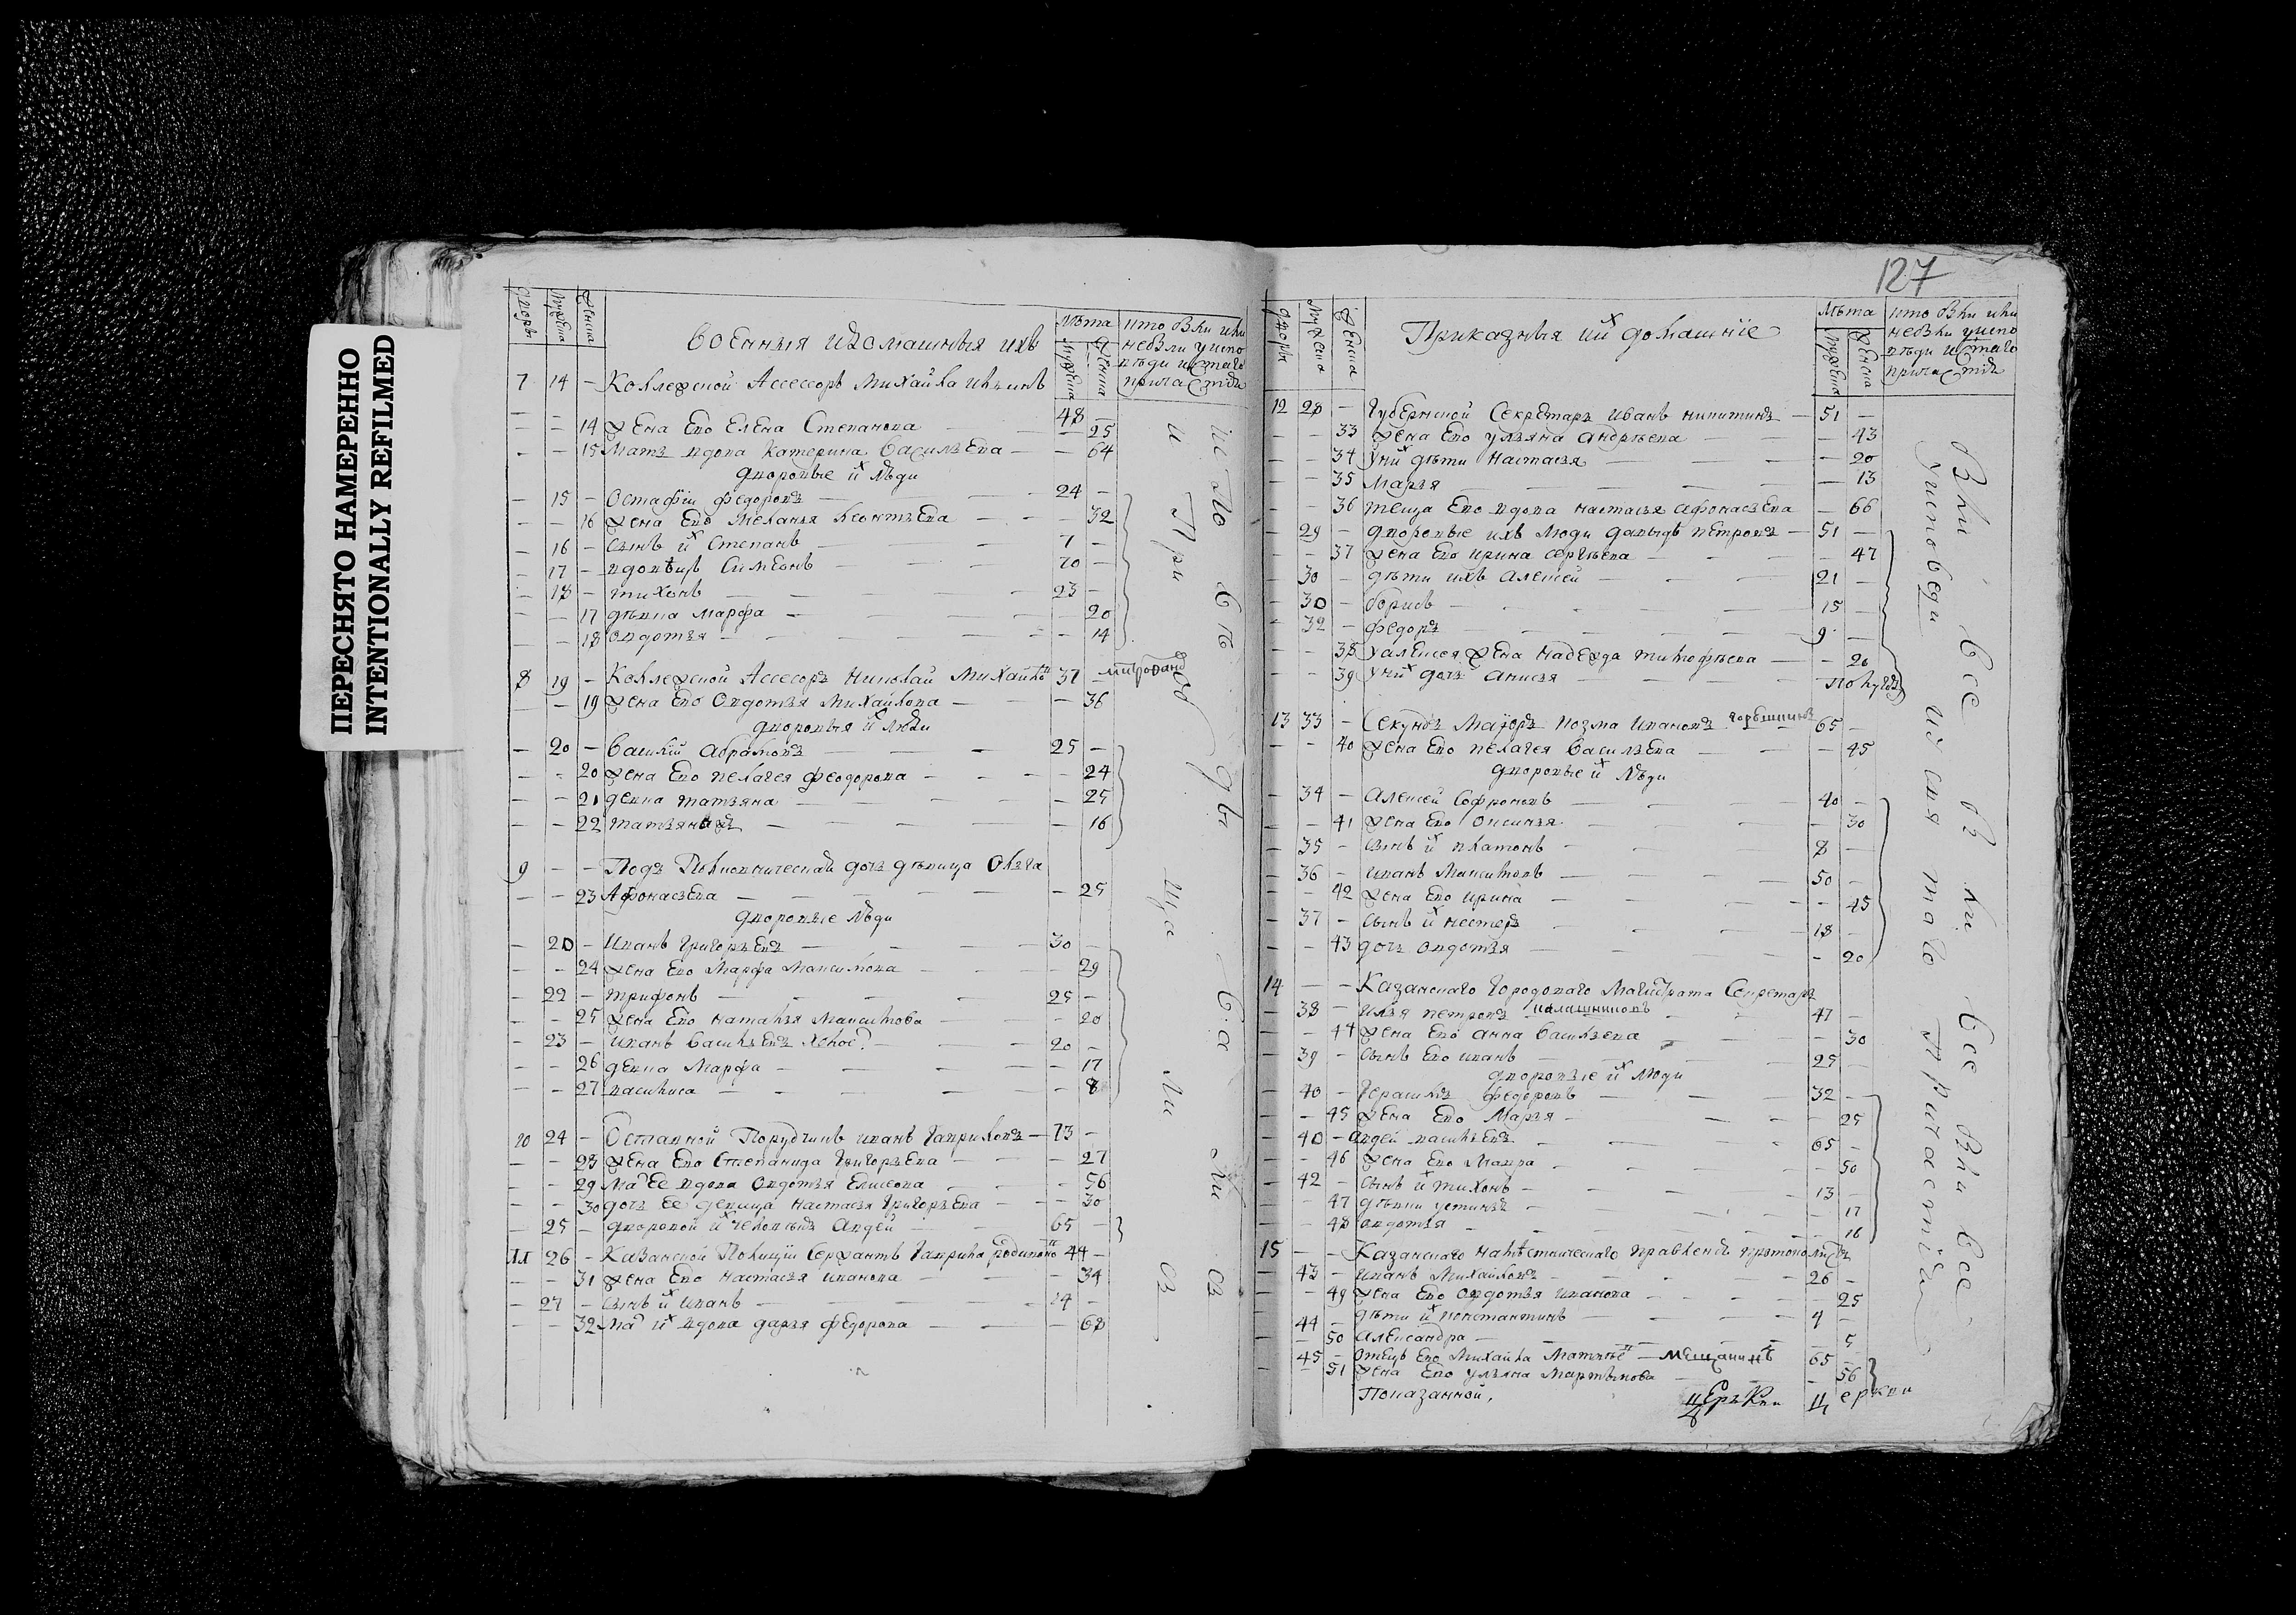 ПЕРЕСНЯТО НАМЕРЕННО
INTENTIONALLY REFILMED
127
дворы
мужеска
женска
Военныя и домашныя ихъ
Лѣта
мужеска
женска
7 14 – Коллежской Ассессоръ Михайла 48 –
– – 14 жена Ево Елена Степанова – 25
– – 15 Мать вдова Катерина Васильева – 64
дворовые их люди
– 15 – Остафiи Федоровъ 24 –
– – 16 жена Ево Меланья Леонтьева – 32
– 16 – Сынъ их Степанъ 7 –
– 17 – вдовецъ Симеонъ 70 –
– 18 – тихонъ 23 –
– – 17 дѣвка марфа – 20
– – 18 овдотья – 14
8 19 – Коллежской Ассесоръ Николай Михайлов 37 –
– – 19 жена Ево Овдотья Михайлова – 36
дворовыя их люди
– 20 – Василiй Абрамовъ 25 –
– – 20 жена Ево пелагея феодорова – 24
– – 21 девка татьяна – 25
– – 22 татьяна ж – 16
9 – – Подполковническая дочь дѣвица Ольга
– – 23 Афонасьева – 25
дворовые люди
– 20 – Иванъ Григорьевъ 30 –
– – 24 жена Ево Марфа Максимова – 29
– 22 – трифонъ 25 –
– – 25 жена Ево наталья Максимова – 20
– 23 – Иванъ Васильевъ холос 20 –
– – 26 девка Марфа – 17
– – 27 василиса – 8
10 24 – Отставной Порутчикъ иванъ Гавриловъ 73 –
– – 28 жена Ево Степанида Григорьева – 27
– – 29 Ма Ее вдова Овдотья Елисеева – 56
– – 30 дочь Ее девица настасья Григорьева – 30
– 25 – дворовой их человѣкъ Авдей 65 –
11 26 – Казанской Полицiи Сержантъ Гаврила родионов 44 –
– – 31 жена Ево настасья иванова – 34
– 27 – Сынъ их Иванъ 14 –
– – 32 Ма их вдова дарья Федорова – 68
дворы
мужеска
женска
Приказныя их домашнiе
Лѣта
мужеска
женска
12 28 – Губернской Секретарь Иванъ никитинъ 51 –
– – 33 жена Ево ульяна андрѣева – 43
– – 34 у них дѣти Настасья – 20
– – 35 Марья – 13
– – 36 теща Ево вдова настасья афонасьева – 66
– 29 – дворовые ихъ люди давыдъ петровъ 51 –
– – 37 жена Ево ирина сергѣева – 47
– 30 – дѣти ихъ алексей 21 –
– 30 – борисъ 15 –
– 32 – федоръ 9 –
– – 38 у алексея жена надежда тимофѣева – 20
– – 39 у них дочь анисья
13 33 – Секундъ Маiоръ козма ивановъ 65 –
– – 40 жена Ево пелагея васильева – 45
дворовые их люди
– 34 – алексей Софроновъ 40 –
– – 41 жена Ево Оксинья – 30
– 35 – Сынъ их платонъ 8 –
– 36 – иванъ Максимовъ 50 –
– – 42 жена Ево ирина – 45
– 37 – Сынъ их нестеръ 18 –
– – 43 дочь овдотья – 20
14 – – Казанскаго Городоваго Магистрата Секретарь
– 38 – илья петровъ калашниковъ 47 –
– – 44 жена Ево анна васильева – 30
– 39 – Сынъ Ево иванъ 25 –
дворовые их люди
– 40 – Герасимъ федоровъ 32 –
– – 45 жена Ево Марья – 25
– 40 – Авдей васильевъ 65 –
– – 46 жена Ево Мавра – 50
– 42 – Сынъ их тихонъ 13 –
– – 47 дѣвки устинья – 17
– – 48 овдотья – 16
15 – – Казанскаго намѣстническаго правленiя
– 43 – иванъ Михайловъ 26 –
– – 49 жена Ево овдотья иванова – 25
– 44 – дѣти их константинъ 4 –
– – 50 александра – 5
– 45 – отецъ Ево Михайла Матвѣев мещанинъ 65 –
– – 51 жена Ево ульяна Мартынова – 56
Показанной, церкви церкви